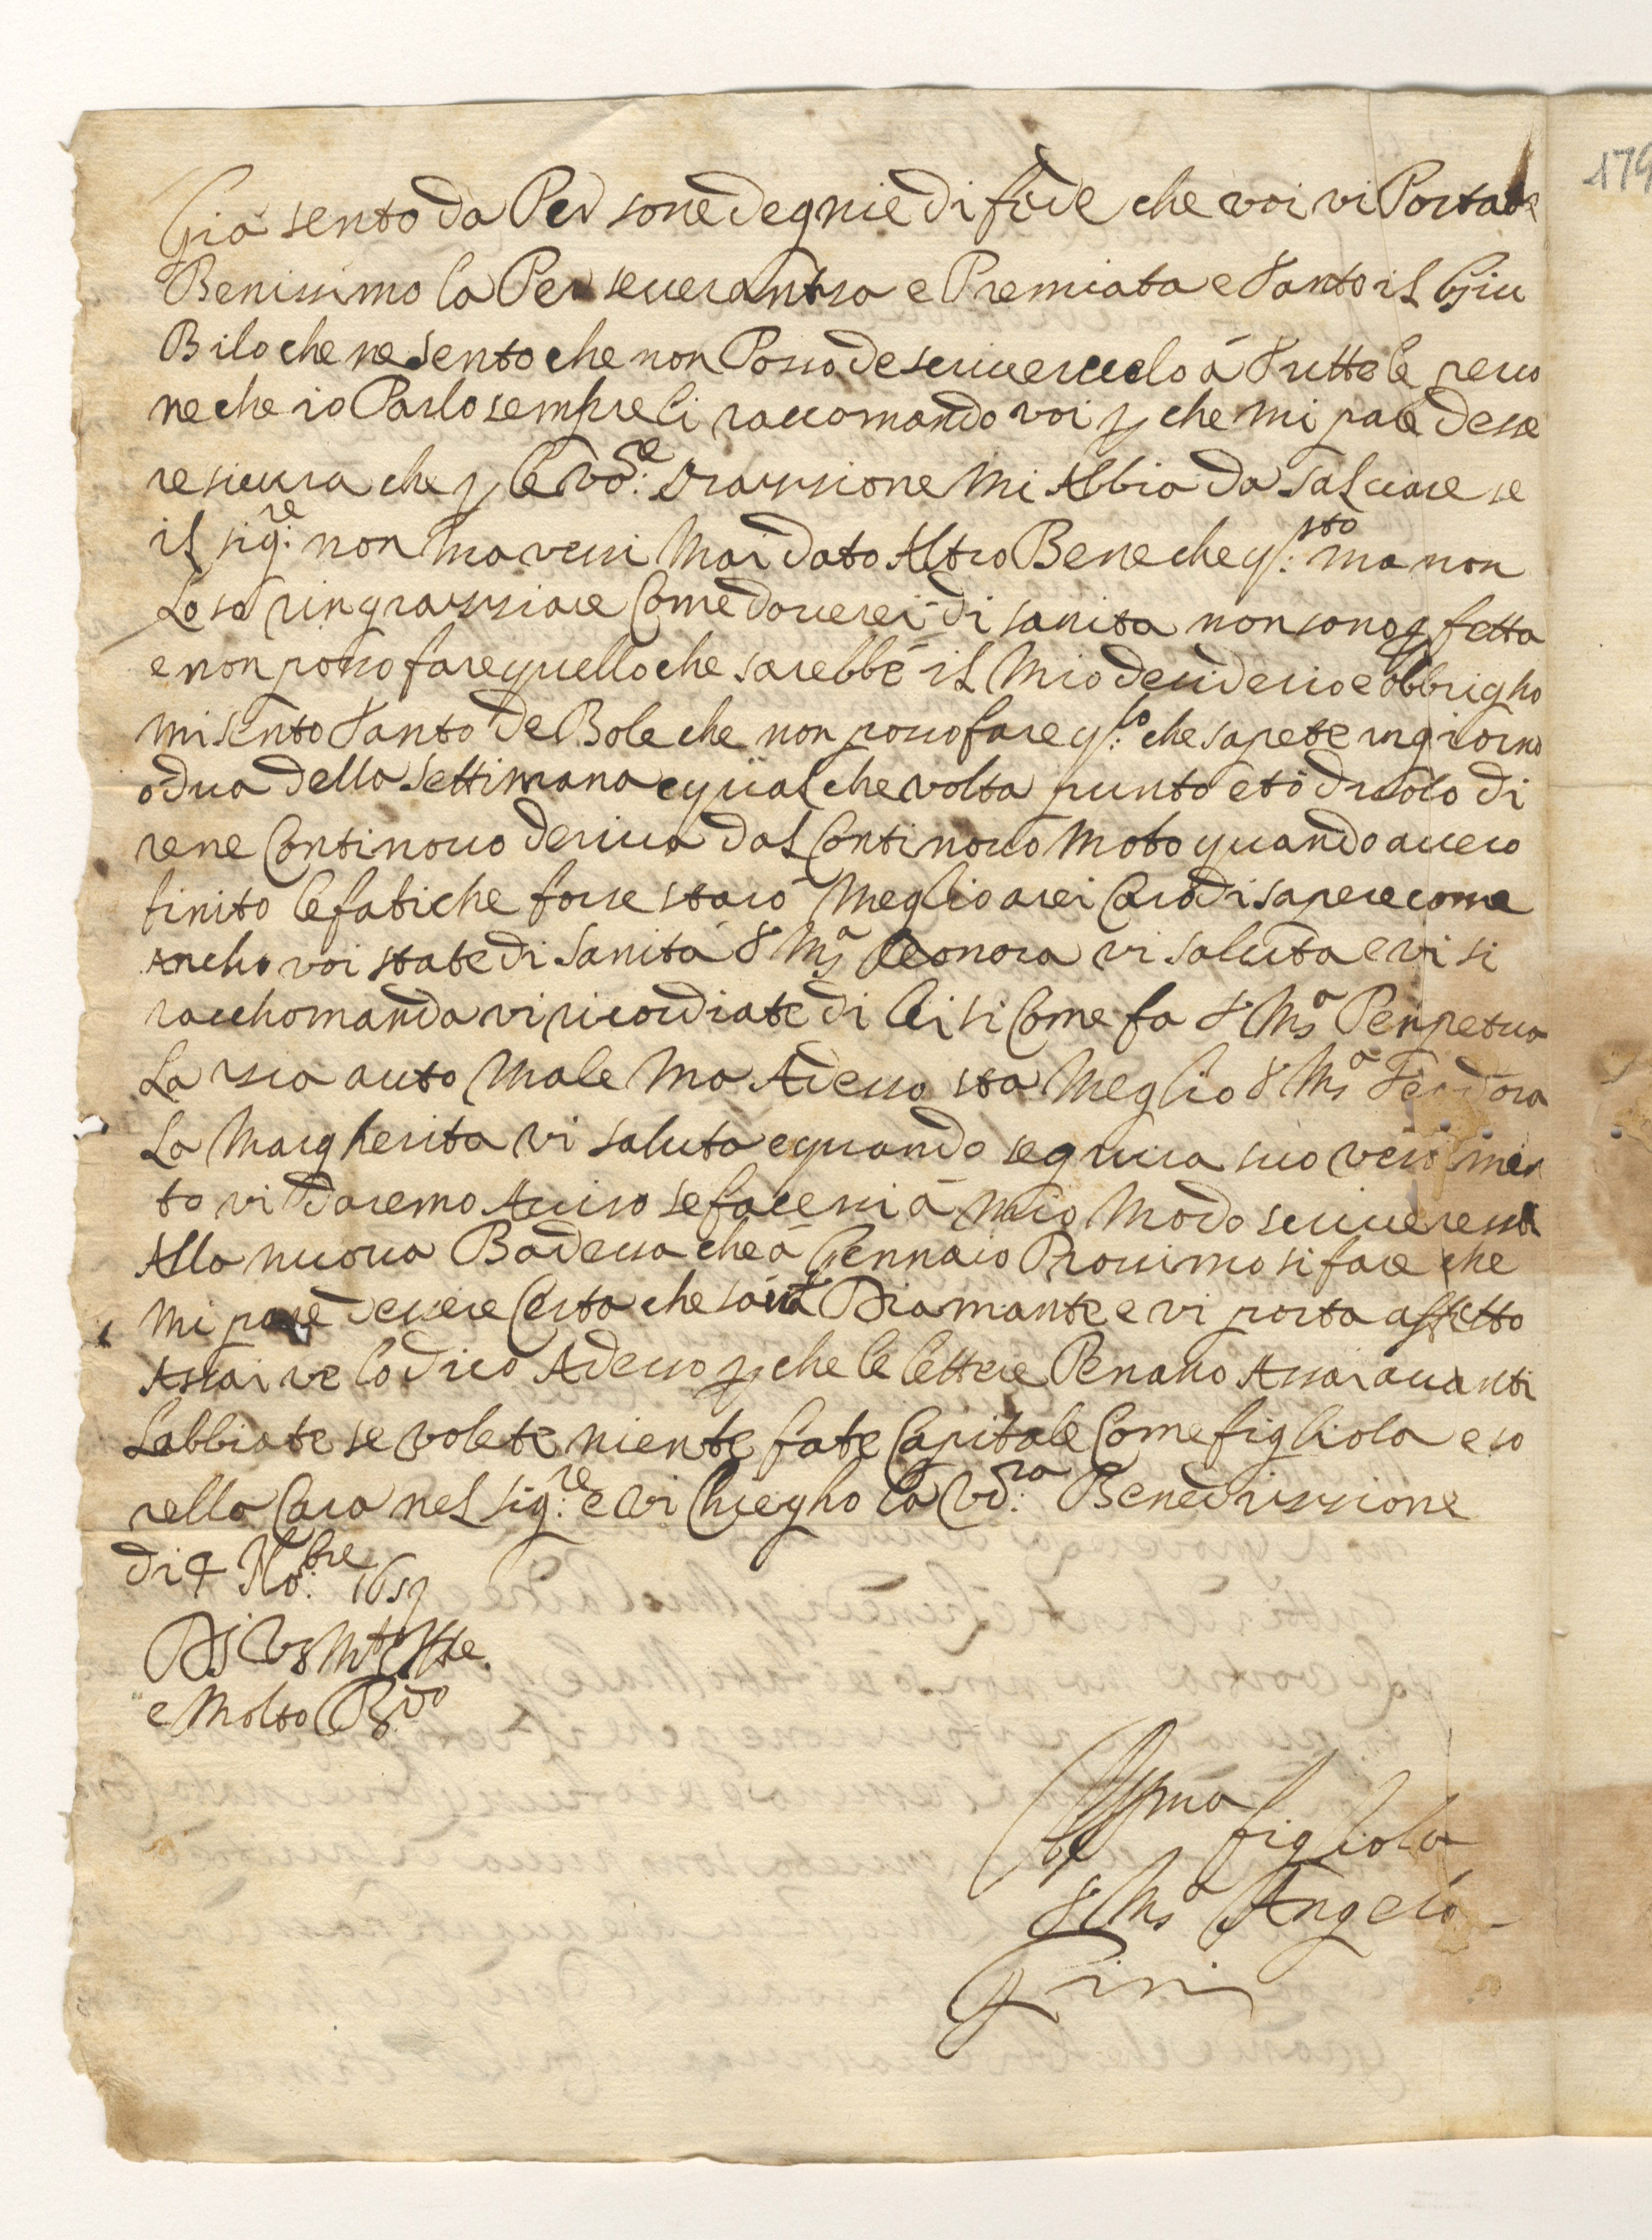 Già sento da Per sone degnie di fede che voi vi Portate
Benissimo la Per seueransa e Premiata e Tanto il Giu
Bilo che ne sento che non Posso descriueruelo à Tutte le perso
ne che io Parlo sempre li raccomando voi p che mi pare desse
re sicura che p le vo.re Orassione Mi Abbia da Salvare se
il sig.re non mavessi Mai dato Altro Bene che q.sto ma non
Lo so ringrassiare Come douerei di sanita non sono p fetta
e non posso fare quello che sarebbe il Mio desiderio e obbrigho
mi sento Tanto de Bole che non posso fare q.lo che sapete un giorno
o dua della settimana e qual che volta punto et ò duolo di
rene Continouo deriva dal Continouo Moto quando auero
finito le fatiche forse starò Meglio arei Caro di sapere come
Ancho voi state di sanità S Ma Leonora vi saluta e vi si
racchomanda vi ricordiate di lei si Come fa S Ma Perpetua
La zia auto Male Ma Adesso sta Meglio S Ma Teodora
La Margherita vi saluta e quando seguira suo vesti men
to vi daremo Auiso se facessi à Mio Modo scriueressi
Alla nuoua Badessa che à Gennaio Prossimo si fare che
Mi pare dessere Certa che sarà Diamante e vi porta affetto
Assai ve lo dico Adesso p che le lettere Penano Assai auanti
Labbiate se volete niente fate Capitale Come figliola e so
rella Cara nel sig.re e vi Chiegho la vo.ra Benedissione
di 4 No.bre 165
Di VS Mto Ille.
e Molto Rdo
figliola
S Ma Angela
Gini
179